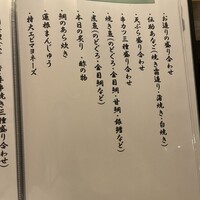 ・お造りの盛り合わせ
・伝助あなご(焼き霜造り・蒲焼き・白焼き)
・天ぷら盛り合わせ
・串カツ三種盛り合わせ
・焼き魚(のどぐろ・金目鯛・甘鯛・銀鱈など)
・煮魚(のどぐろ・金目鯛など)
・本日の炙り・酢の物
・鯛のあら炊き
・蓮根まんじゅう
・特大エビマヨネーズ
焼き三種盛り合わせ)